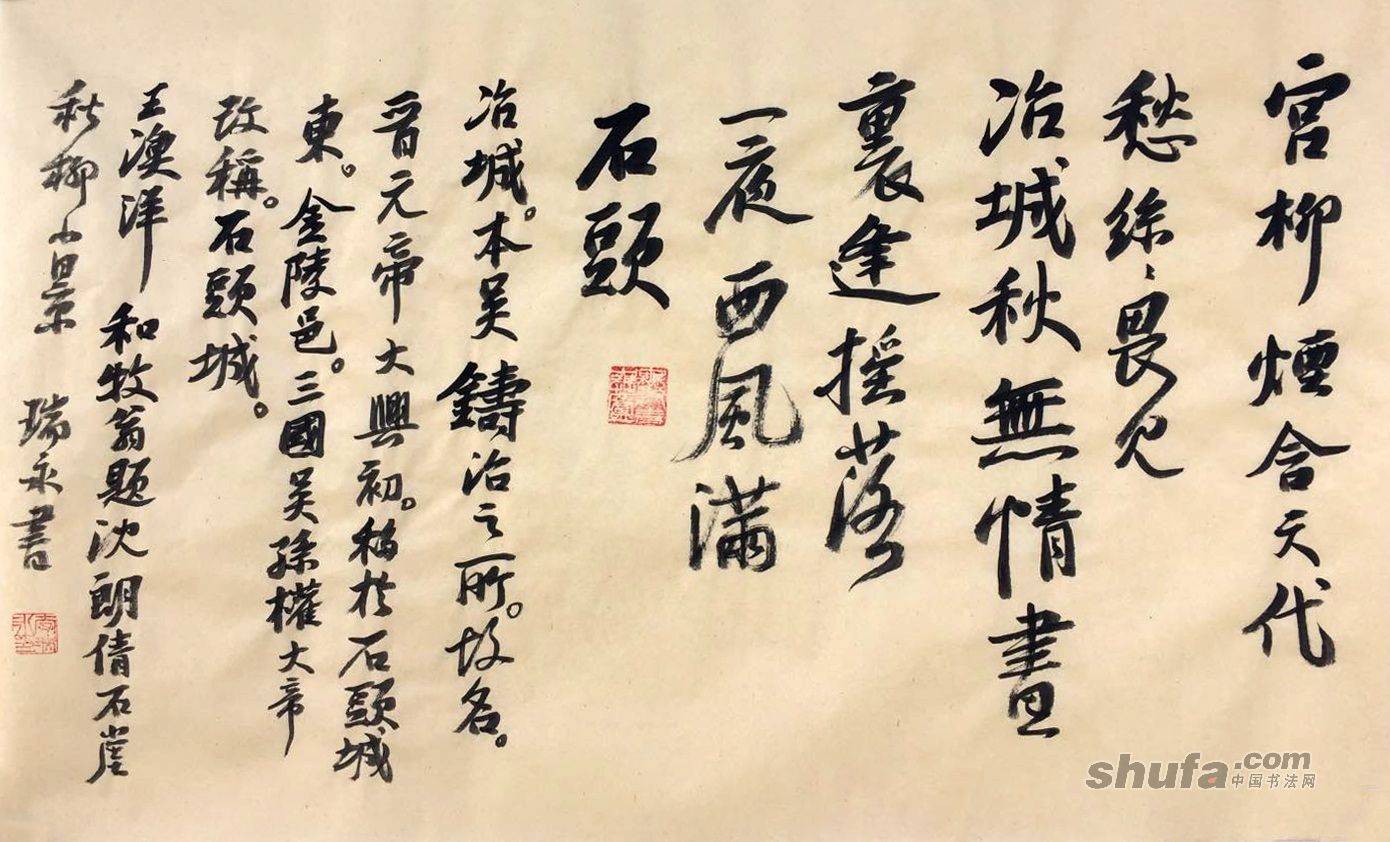 宮柳煙含六代
愁絲〻畏見
冶城秋無情畫
裏逢摇落
一夜西風滿
石頭
冶城。本吴鑄冶之所。故名。
晋元帝大興初。移於石頭城
東。金陵邑。三國吴孫權大帝
改稱。石頭城。
王漁洋 和牧翁題沈朗倩石崖
秋柳小景 瑞永書
shufa.com
中国书法网